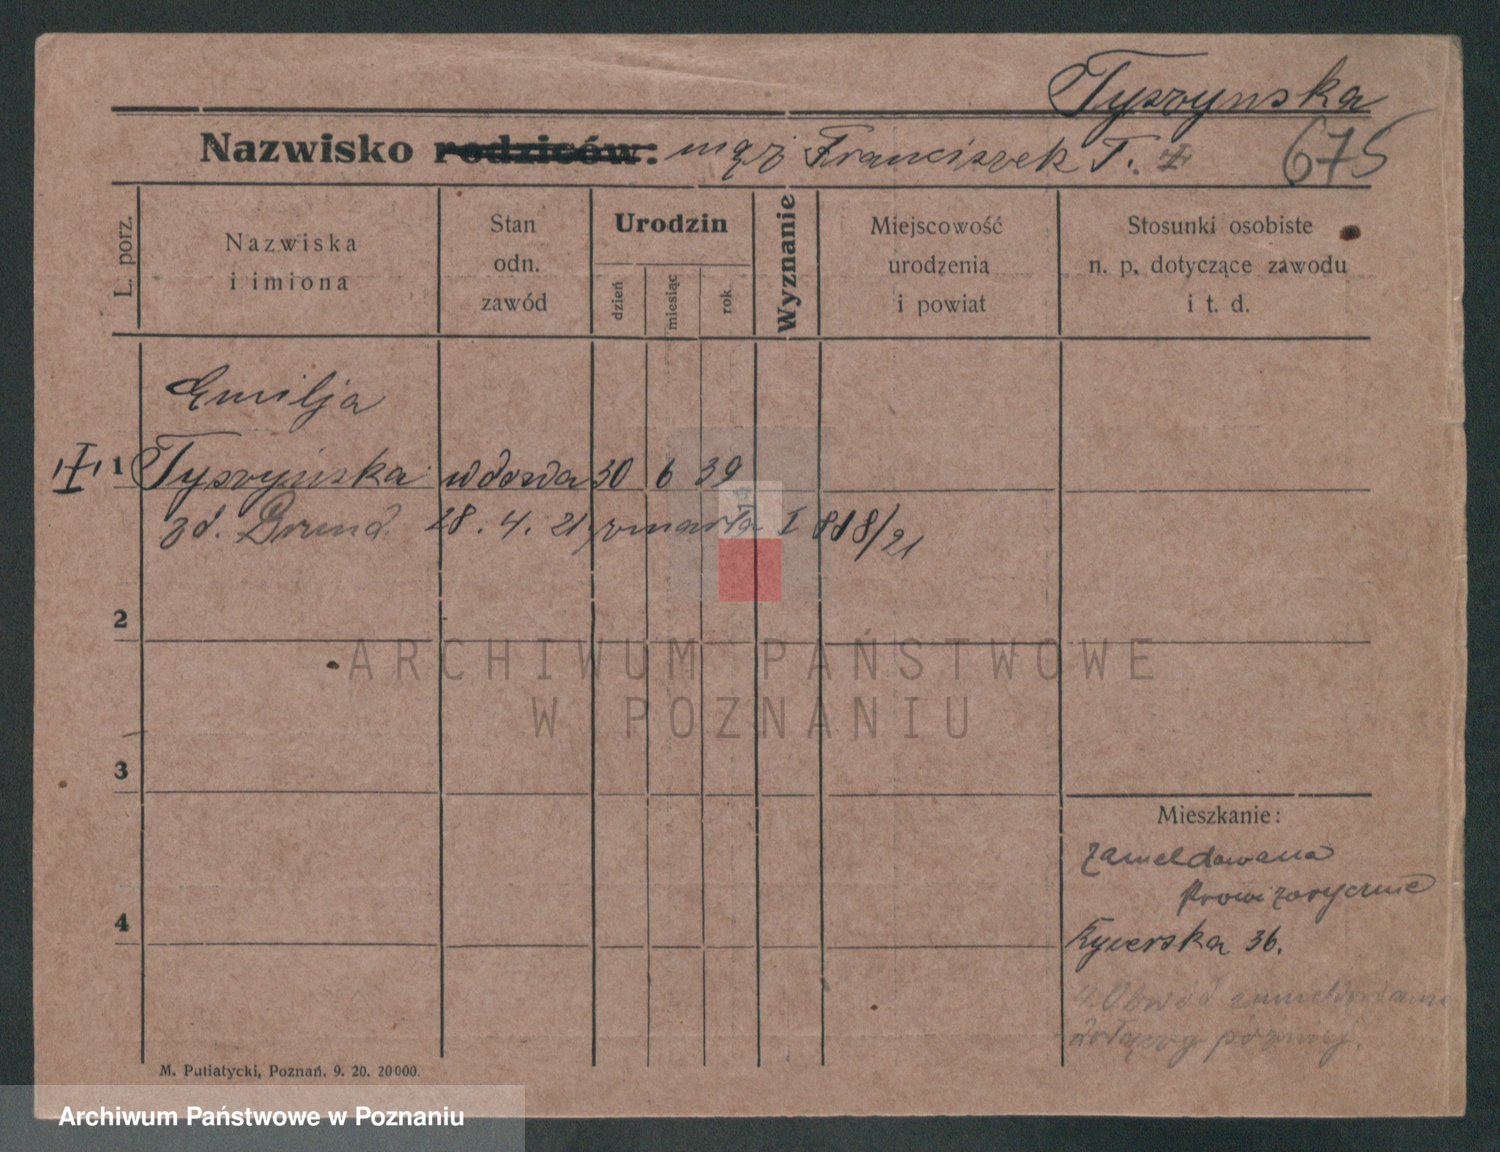 Tyszyńska
Nazwisko rodziców: mąż Franciszek T. 675
L. porz.
Nazwiska
i imiona
Stan
odn.
zawód
Urodzin
dzień
miesiąc
rok
Wyznanie
Miejscowość
urodzenia
i powiat
Stosunki osobiste
n. p. dotyczące zawodu
i t. d.
Emilja
1 Tyszyńska wdowa 30 6 39
zd. 28. 4. 21 zmarła I 818/21
2
3
4
Mieszkanie:
zameldowana
Prowizorycznie
36.
4. Obwód
później.
M. Putiatycki, Poznań. 9. 20. 20000.
ARCHIWUM PAŃSTWOWE
W POZNANIU
Archiwum Państwowe w Poznaniu